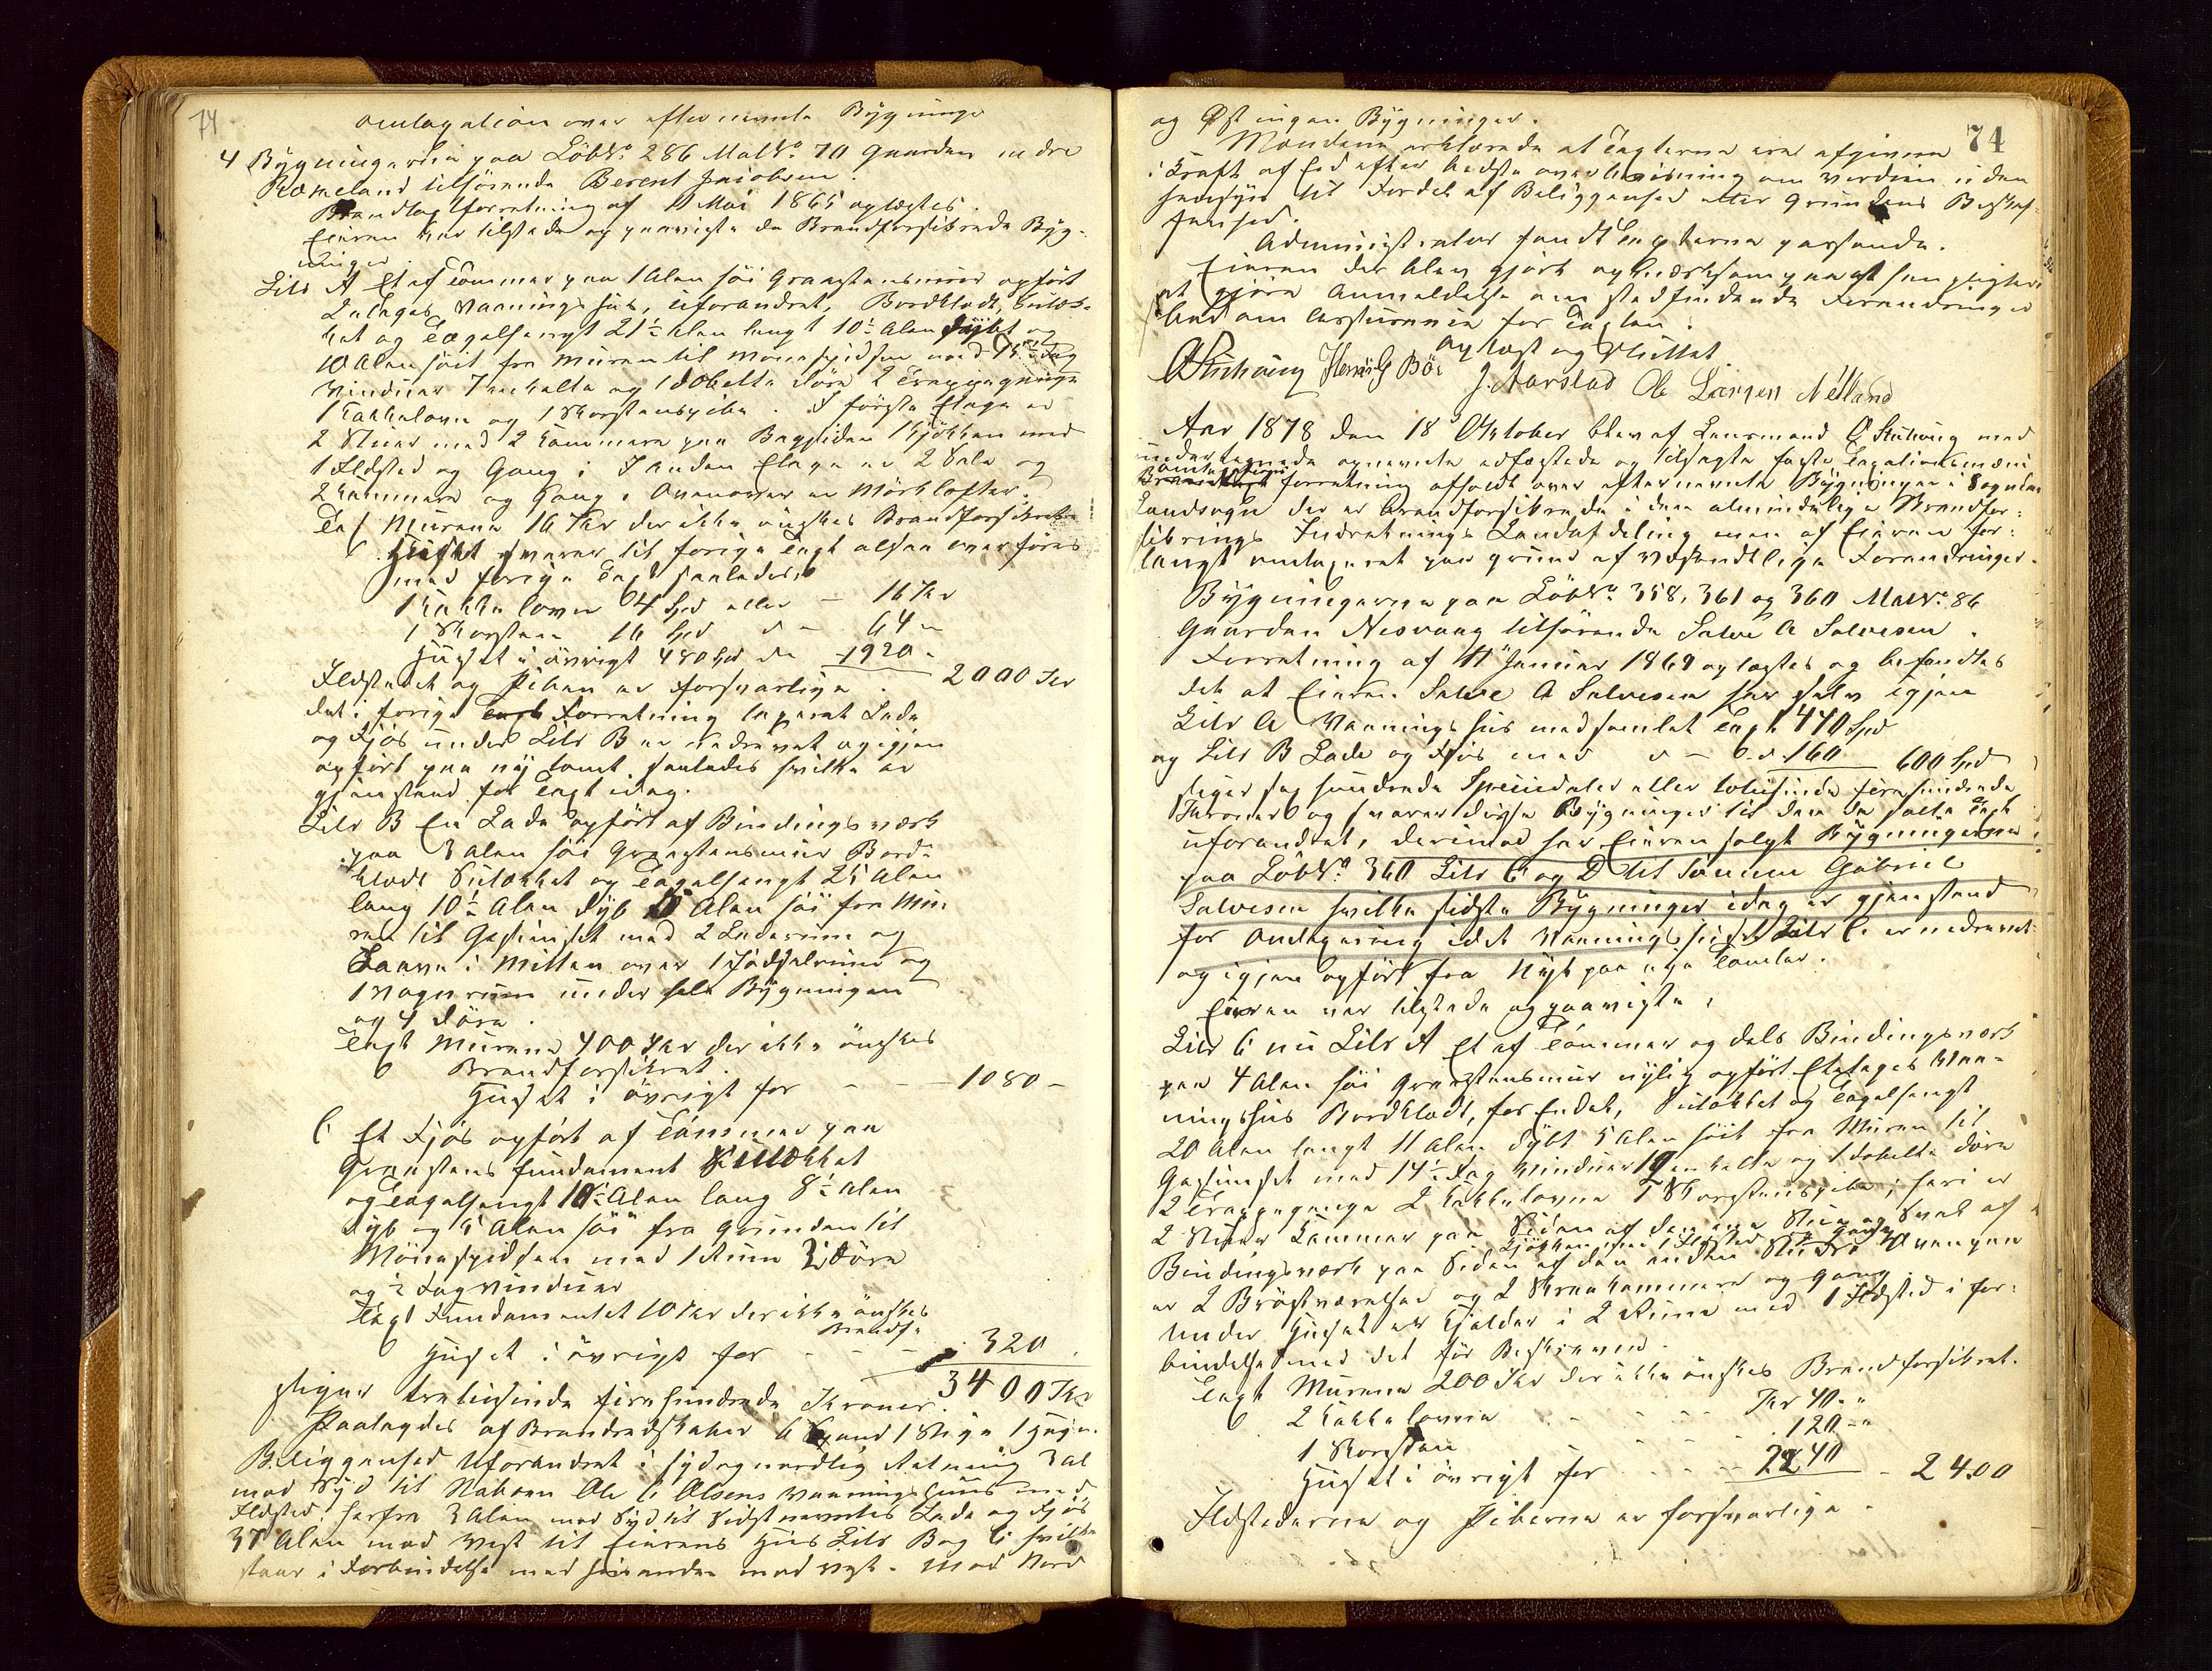 74
omtagation over efternevnte Bygninger
4 Bygningerne paa LöbNo 286 MatNo 70 Gaarden indre
Rækeland tilhörende Berent Jacobsen.
Brandtagtforretning af 11 Mai 1865 oplæstes.
Eieren var tilstede og paaviste de Brandforsikrede Byg-
ninger.
Litr A Et af Tömmer paa 1 Alen höi Graastensmuur opfört
2 Etages Vaaningshus, uforandret, Bordklædt, Sutak-
ket og Tagelhængt 21½ Alen langt 10½ Alen dybt og
10 Alen höit fra Muren til Mönespidsen med 15 ½ Fag
Vinduer 7 enkelte og 1 dobelte Döre 2 Trappegange
1 Kakkelovn og 1 Skorstenspibe. I förste Etage er
2 Stuer med 2 Kammere paa Bagsiden 1 Kjökken med
1 Ildsted og Gang i I anden Etage er 2 Sale og
2 Kammere og Gang. Ovenover er Mörklofter.
Taxt Murene 16 Kr der ikke önskes Brandforsikret
Huset svarer til forige Taxt altsaa overföres
med forige Taxt saaledes:
1 Kakkelovn 4 Spd eller - 16 Kr
1 Skorsten 16 Spd d - 64 "
Huset i övrigt 480 Spd do 1920 -
Ildstedet og Piben er forsvarlige. 2000 Kr
det i forige Forretning taxeret Lade
og Fjös under Litr B er nedrevet og igjen
opfört paa ny Tomt saaledes hvilke er
gjenstand for Taxt idag.
Litr B En Lade opfört af Bindingsværk
paa 3 Alen höi Graastensmuur Bord-
klædt Sutakket og Tagelhængt 25 Alen
lang 10½ Alen dyb Alen höi fra Mu-
ren til Gesimset med 2 Laderum og
Laave i Mitten over 1 Födselrum og
1 Vognrum under hele Bygningen
og 4 Döre.
Taxt Murene 400 Kr der ikke önskes
Brandforsikret.
Huset i övrigt for - - - 1080 -
C Et Fjös opfört af Tömmer paa
Graastens fundament Sutakket
og Tagelhængt 10½ Alen lang 8½ Alen
dyb og 5 Alen höi fra Grunden til
Mönespidsen med 1 Rum 2 Döre
og ½ Fag Vinduer
Taxt Fundamentet 10 Kr der ikke önskes
Brandf.
Huset i övrigt for - - - 320
3400 Kr
siger tretusinde firehundrede Kroner.
Paalagdes af Brandredskaber 6 Spand 1 Stige 1 Hage.
Beliggenhed uforandret i sydognordlig Retning 3 al
mod Syd til Naboen Ole C Olsens Vaaningshuus med
Ildsted. herfra 3 Alen mod Syd til sidstnevntes Lade og Fjös
37 Alen mod Vest til Eierens Hus Litr B og C hvilke
staar i Forbindelse med hinanden mod Vest. mod Nord
74
og Öst ingen Bygninger.
Mændene erklærede at Taxterne ere afgivne
i Kraft af Eed efter bedste overbeviisning om Verdien uden
hensyn til Fordel af Beliggenhed eller Grundens Beskaf-
fenhed.
Administrator fandt Taxterne passende.
Eieren der blev gjort opmærksom paa at han pligter
at gjöre Anmeldelse om stedfindende Forandringer
bad om Assurance for Taxten.
Oplæst og Sluttet
Stuhaug Henrik G Böe J. Aarstad Ole Larsen Nelland
Aar 1878 den 18 Oktober blev af Lensmand O Stuhaug med
undertegnede opnevnte edfæstede og tilsagte faste Taxationsmænd
omtaxations forretning afholdt over efternevnte Bygninger i Sogndal
Landsogn der er brandforsikrede i den almindelige Brandfor-
sikrings Indretnings Landafdeling men af Eieren for-
langt omtaxeret paa grund af væsendtlige Forandringer.
Bygningerne paa LöbNo 358, 361 og 360 MatNo 86
Gaarden Nesvaag tilhörende Salve A Salvesen.
Forretning af 11 Januar 1869 oplæstes og befandtes
det at Eieren Salve A Salvesen har selv igjen
Litr A Vaaningshus med samlet Taxt 440 Spd
og Litr B Lade og Fjös med d - d 160 600 Spd
siger sex hundrede Speciedaler eller totusinde firehundrede
Kroner og svarer disse Bygninger til den da satte Taxt
uforandret, derimod har Eieren solgt Bygningerne
paa LöbNo 360 Litr C og D til Sönnen Gabriel
Salvesen hvilke sidste Bygninger idag er gjenstand
for Omtaxering idet Vaaningshuset Litr C er nedrevet
og igjen opfört fra Nyt paa nye Tomter.
Eieren var tilstede og paaviste:
Litr C nu Litr A Et af Tömmer og dels Bindingsværk
paa 4 Alen höi Graastensmuur nylig opfört Etetages Vaa-
ningshus Bordklædt, for Endel, Sutakket og Tagelhengt
20 Alen langt 11 Alen dybt 5 Alen höit fra Muren til
Gesimset med 14½ Fag Vinduer 12 enkelte og 1 dobelte Döre
2 Trappegange 2 Kakkelovne 1 Skorstenspibe; heri er
2 Stuer Kammer paa Siden af den ene Stue og Sval af
Kjökken med 1 Ildsted og Gang
Bindingsværk paa Siden af den anden Stue. Ovenpaa
er 2 Bröstværelser og 2 Skraakammere og Gang.
Under Huset er Kjelder i 2 Rum med 1 Ildsted i for-
bindelse med det för Beskrevne.
Taxt Murene 200 Kr der ikke önskes Brandforsikret.
2 Kakkelovne - - - Kr 40 - "
1 Skorsten - - - 120 - "
Huset i övrigt for - - - 2240 - 2400
Ildstederne og Piberne er forsvarlige.